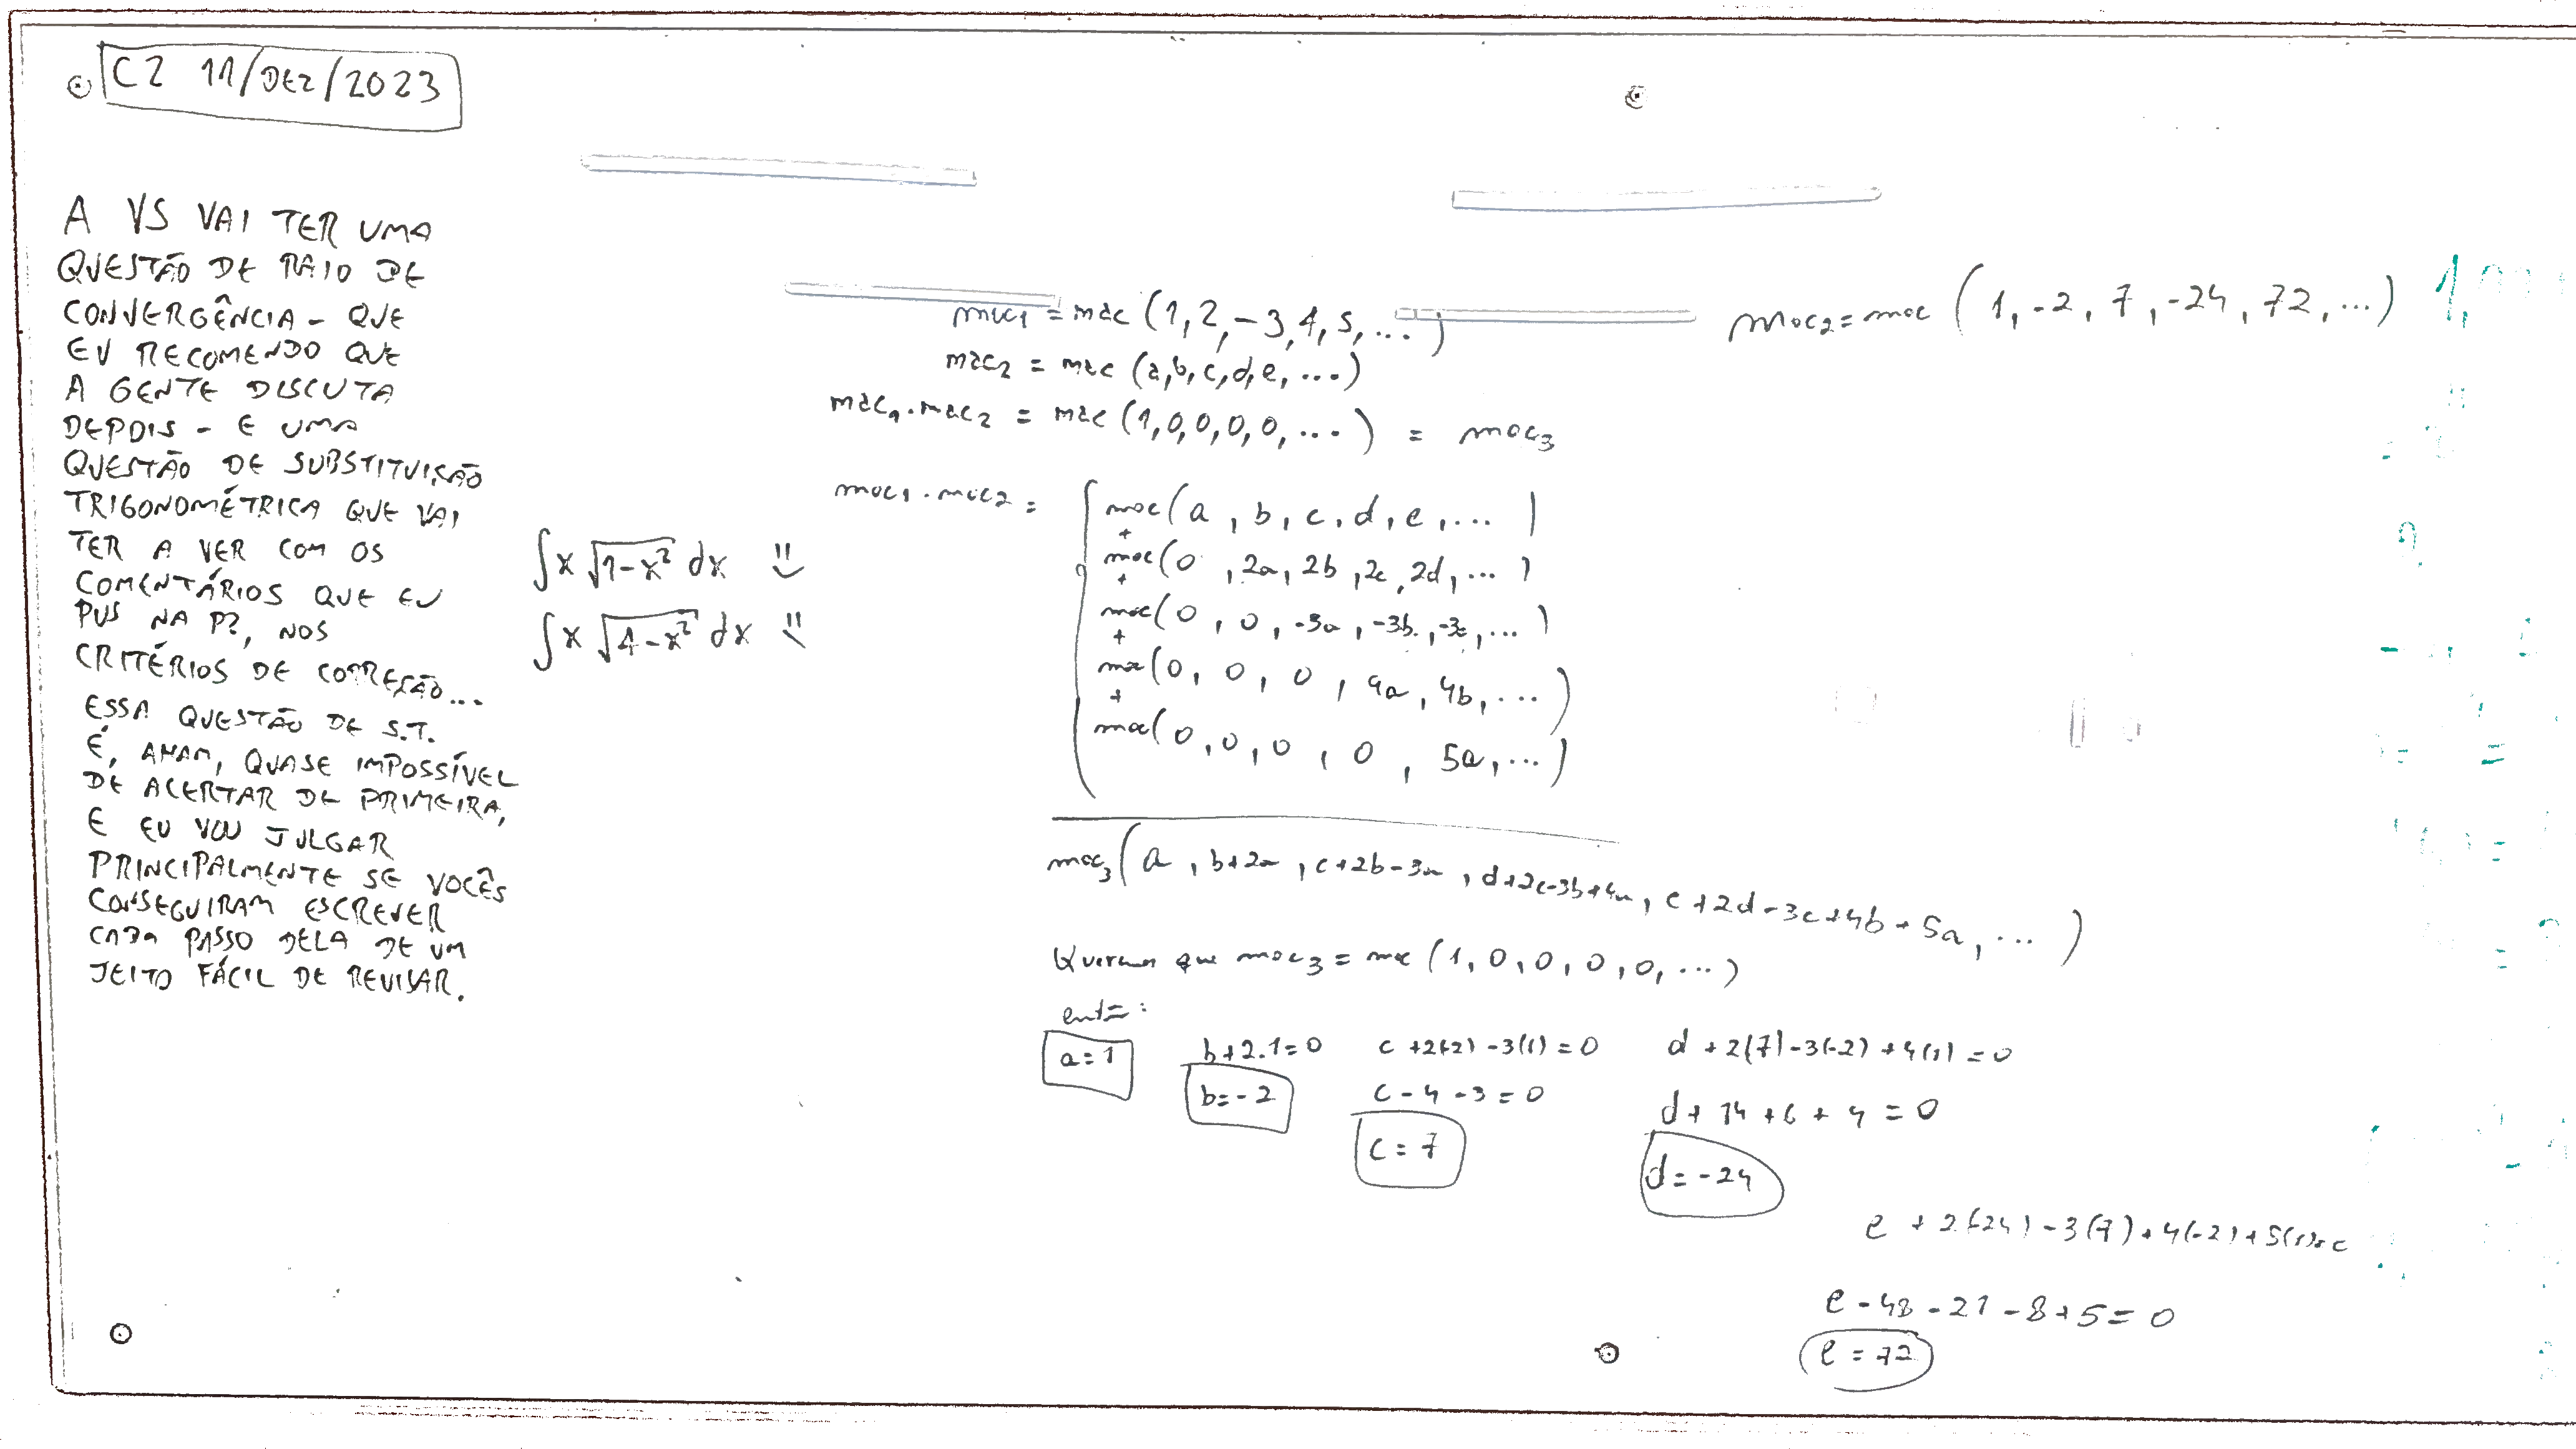 C2 11/DEZ/2023
A VS VAI TER UMA
QUESTÃO DE RAIO DE
CONVERGÊNCIA - QUE
EU RECOMENDO QUE
A GENTE DISCUTA
DEPOIS - E UMA
QUESTÃO DE SUBSTITUIÇÃO
TRIGONOMÉTRICA QUE VAI
TER A VER COM OS
COMENTÁRIOS QUE EU
PUS NA P2, NOS
CRITÉRIOS DE CORREÇÃO...
ESSA QUESTÃO DE S.T.
É, AHAM, QUASE IMPOSSÍVEL
DE ACERTAR DE PRIMEIRA,
E EU VOU JULGAR
PRINCIPALMENTE SE VOCÊS
CONSEGUIRAM ESCREVER
CADA PASSO DELA DE UM
JEITO FÁCIL DE REVISAR.
∫x √(1-x²) dx
∫x √(4-x²) dx
mac₁ = mac (1, 2, -3, 4, 5, ...)
mac₂ = mac (a, b, c, d, e, ...)
mac₁ . mac₂ = mac (1, 0, 0, 0, 0, ...) = mac₃
mac₁ . mac₂ =
mac (a, b, c, d, e, ...)
+
mac (0, 2a, 2b, 2c, 2d, ...)
+
mac (0, 0, -3a, -3b, -3c, ...)
+
mac (0, 0, 0, 4a, 4b, ...)
+
mac (0, 0, 0, 0, 5a, ...)
mac₃ (a, b+2a, c+2b-3a, d+2c-3b+4a, e+2d-3c+4b+5a, ...)
Queremos que mac₃ = mac (1, 0, 0, 0, 0, ...)
então:
a=1
b+2.1=0
b=-2
c+2(-2)-3(1)=0
c-4-3=0
c=7
d+2(7)-3(-2)+4(1)=0
d+14+6+4=0
d=-24
e+2(-24)-3(7)+4(-2)+5(1)=0
e-48-21-8+5=0
e=72
mac₂ = mac (1, -2, 7, -24, 72, ...)